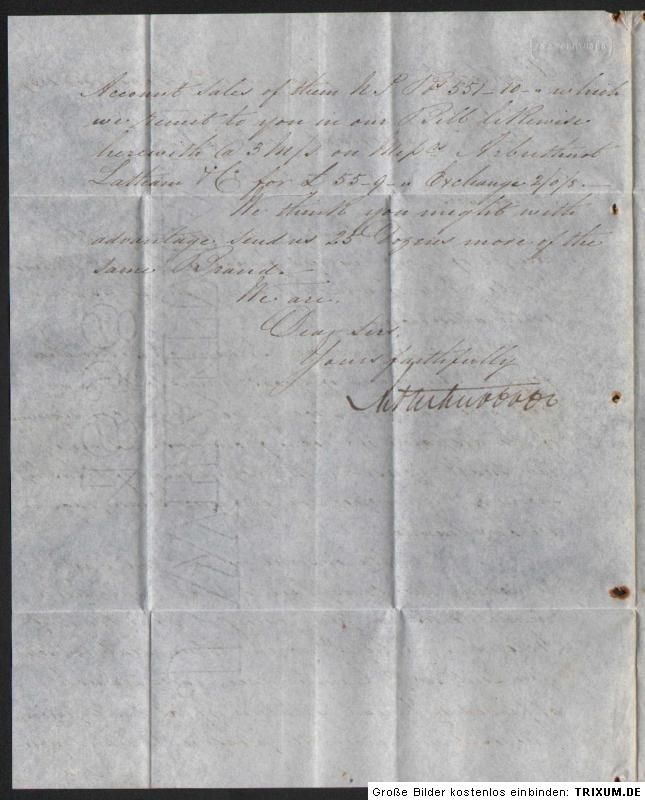 Account Sales of them N P Rs 551-10- which
we remit to you in our Bill likewise
herewith @ 3 m/s on Messrs Arbuthnot
Latham & Co for £ 55-9- Exchange 2/0/8.—
We think you might with
advantage send us 25 Dozens more of the
same Brand.—
We are.
Dear Sirs
Yours faithfully
Große Bilder kostenlos einbinden: TRIXUM.DE